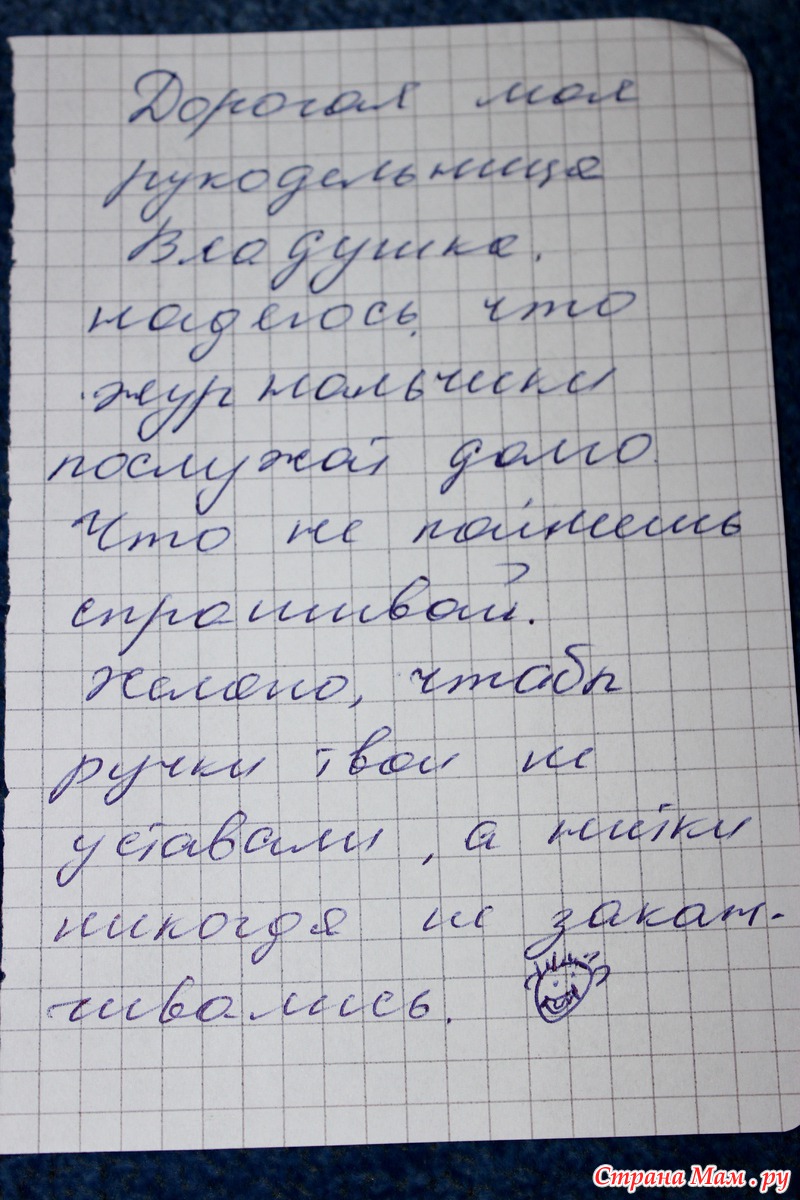 Дорогая моя
рукодельница
Владушка.
надеюсь, что
журнальчики
послужат долго
Что не поймешь
спрашивай.
Желаю, чтобы
ручки твои не
уставали, а нитки
никогда не закан-
чивались.
Страна Мам.ру